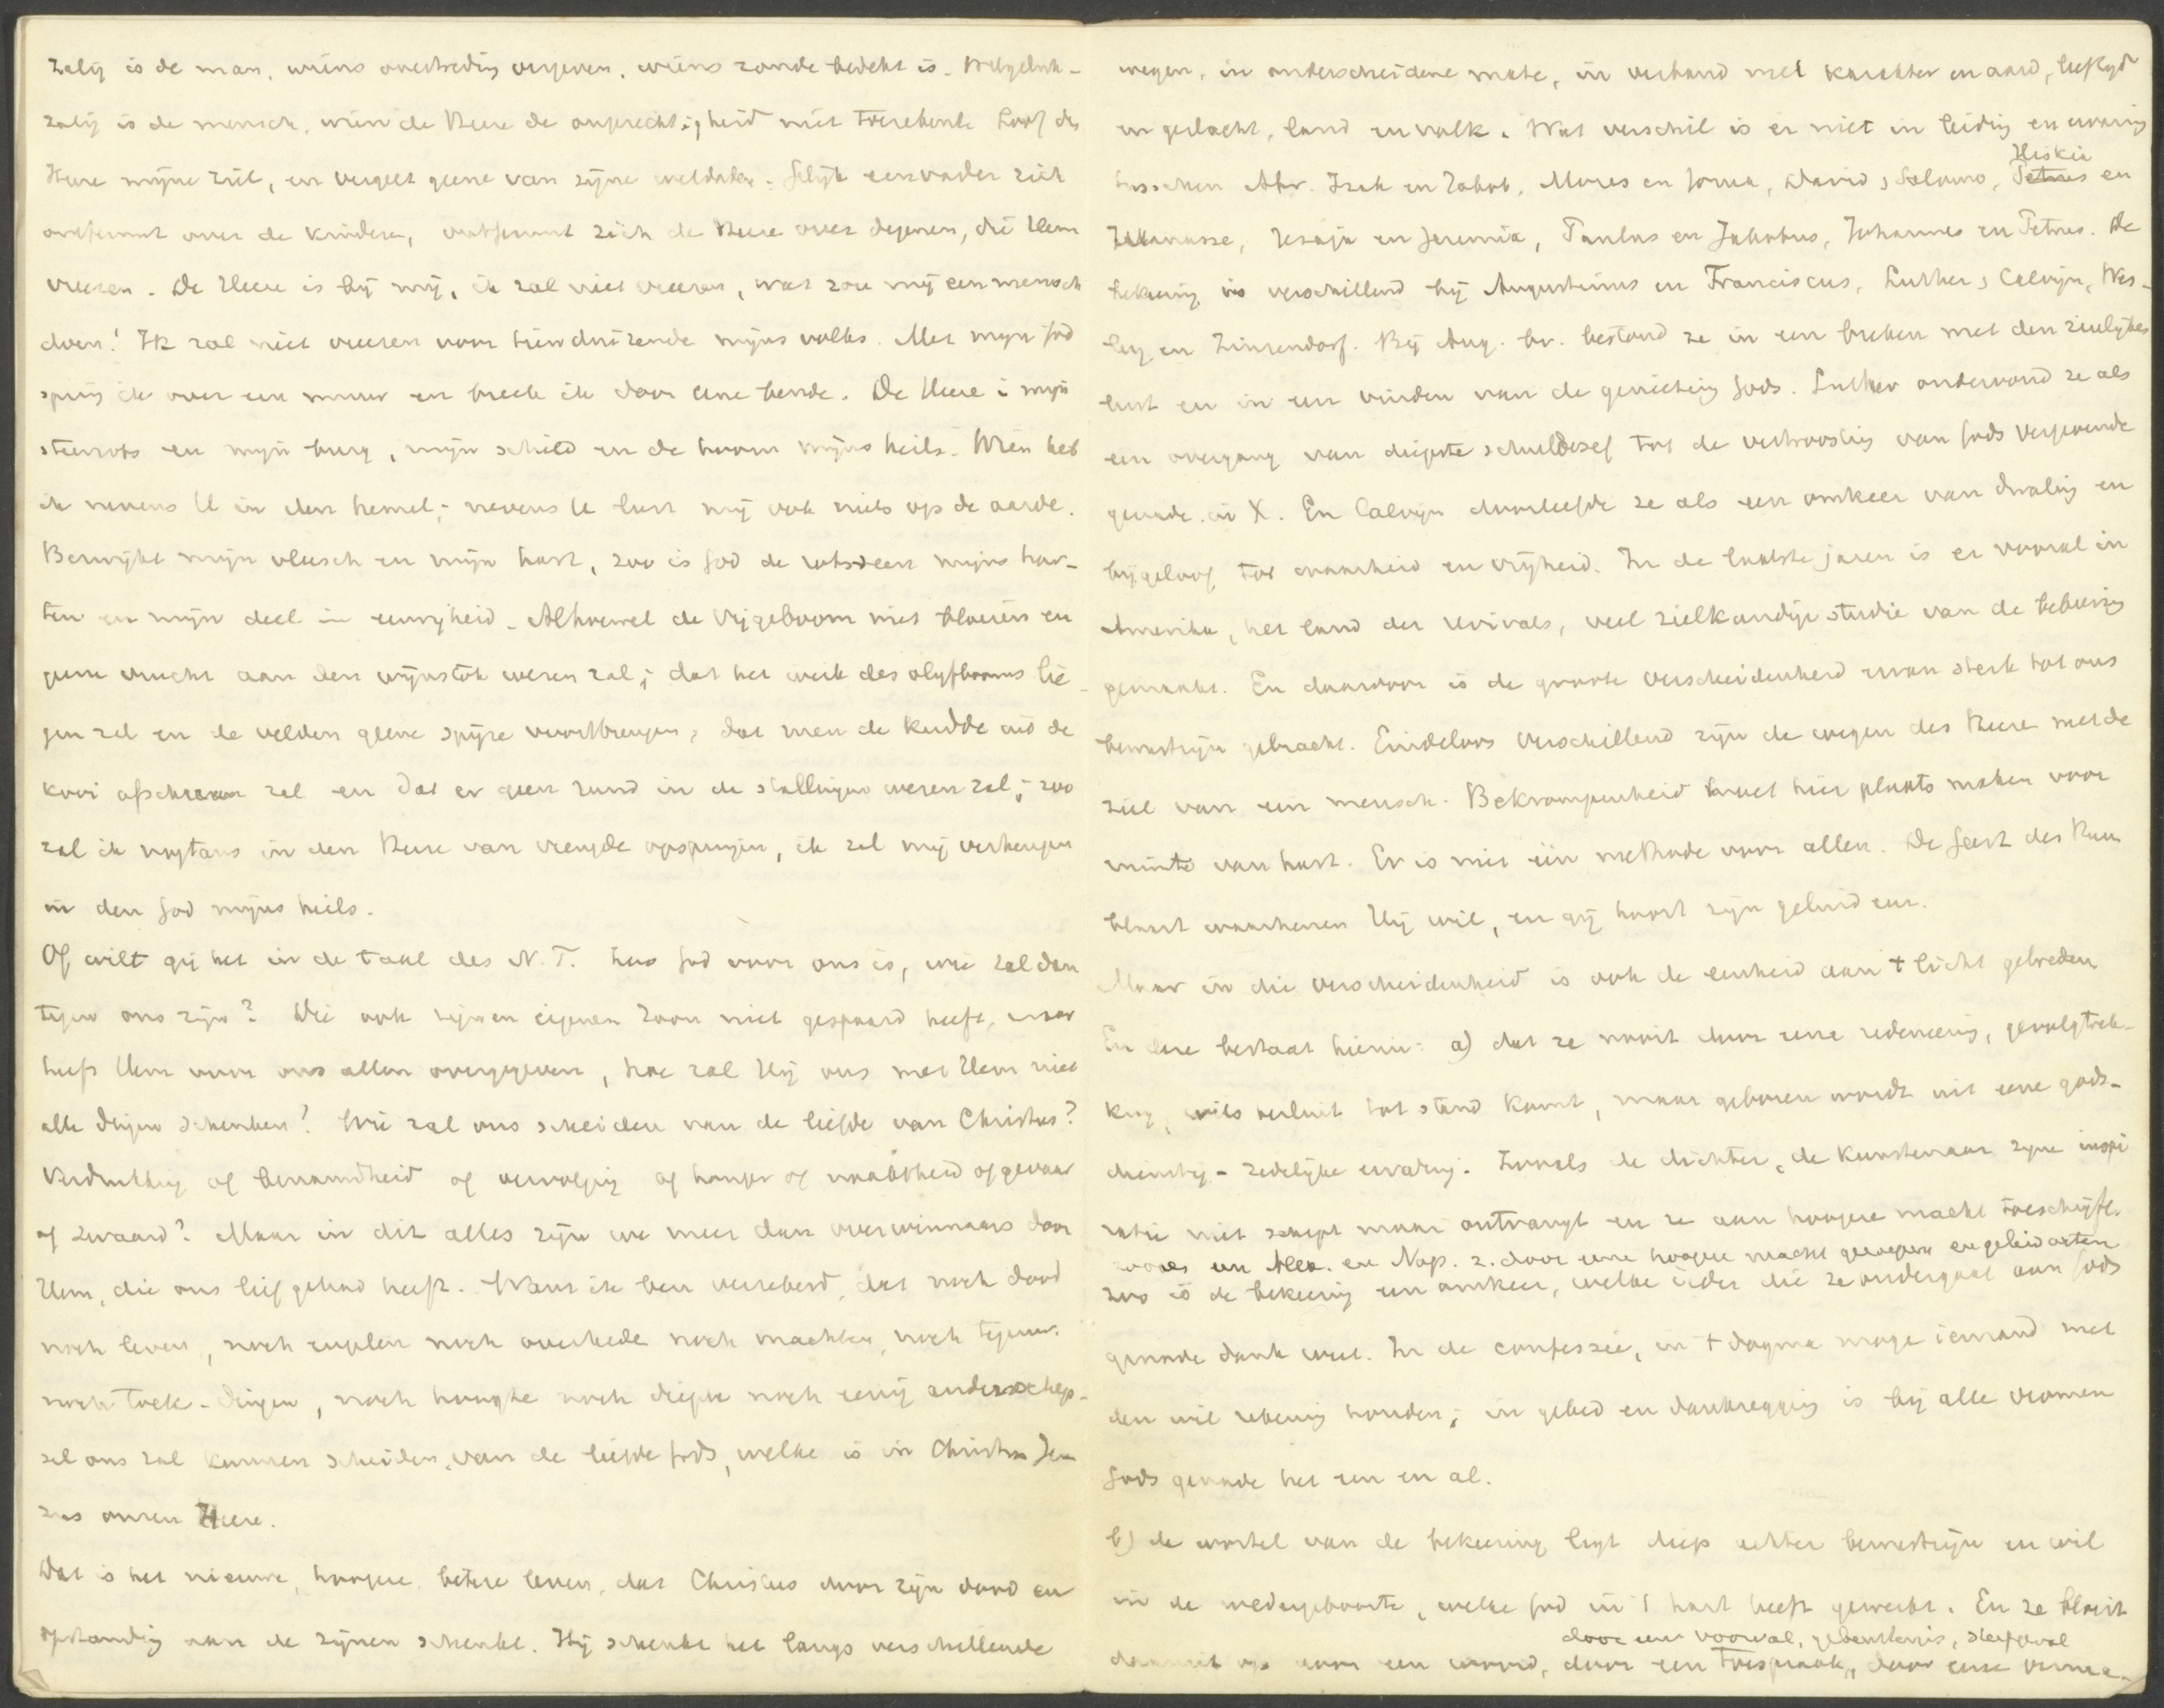 Zalig is de man, wiens overtreding vergeven, wiens zonde bedekt is. Welgeluk-
zalig is de mensch, wien de Heere de ongerechtigheid niet toerekent. Loof den
Heere mijne ziel, en vergeet geene van zijne weldaden. Gelijk een vader zich
ontfermt over de kinderen, ontfermt zich de Heere over degenen, die Hem
vreezen. De Heere is bij mij, ik zal niet vreezen, wat zou mij een mensch
doen! Ik zal niet vreezen voor tienduizende mijns volks. Met mijn God
spring ik over een muur en breek ik door eene bende. De Heere is mijn
steenrots en mijn burg, mijn schild en de hoorn mijns heils. Wien heb
ik nevens U in den hemel; nevens U lust mij ook niets op de aarde.
Bezwijkt mijn vleesch en mijn hart, zoo is God de rotssteen mijns har-
ten en mijn deel in eeuwigheid. Alhoewel de vijgeboom niet bloeien en
geene vrucht aan den wijnstok wezen zal; dat het werk des olijfbooms lie-
gen zal en de velden geene spijze voortbrengen; dat men de kudde uit de
kooi afscheuren zal en dat er geen rund in de stallingen wezen zal; zoo
zal ik nogtans in den Heere van vreugde opspringen, ik zal mij verheugen
in den God mijns heils.
Of wilt gij het in de taal des N. T. Zoo God voor ons is, wie zal dan
tegen ons zijn? Die ook zijnen eigenen Zoon niet gespaard heeft, maar
heeft Hem voor ons allen overgegeven, hoe zal Hij ons met Hem niet
alle dingen schenken! Wie zal ons scheiden van de liefde van Christus?
Verdrukking of benauwdheid of vervolging of honger of naaktheid of gevaar
of zwaard? Maar in dit alles zijn we meer dan overwinnaars door
Hem, die ons liefgehad heeft. Want ik ben verzekerd, dat noch dood
noch leven, noch engelen noch overheden noch machten, noch tegenw.
noch toek-dingen, noch hoogte noch diepte noch eenig ander schep-
sel ons zal kunnen scheiden van de liefde Gods, welke is in Christus Je-
zus onzen Heere.
Dat is het nieuwe, hoogere, betere leven, dat Christus door zijn dood en
opstanding aan de zijnen schenkt. Hij schenkt het langs verschillende
wegen, in onderscheidene mate, in verband met karakter en aard, leeftijd
en geslacht, land en volk. Wat verschil is er niet in leiding en ervaring
tusschen Abr. Izak en Jakob, Mozes en Jozua, David, Salomo, Petrus Hiskia en
Manasse, Jesaja en Jeremia, Paulus en Jakobus, Johannes en Petrus. De
bekeering is verschillend bij Augustinus en Franciscus, Luther, Calvijn, Wes-
ley en Zinzendorf. Bij Aug. bv. bestond ze in een breken met den zinlijken
lust en in een vinden van de genieting Gods. Luther ondervond ze als
een overgang van diepste schuldbesef tot de vertroosting van Gods vergevende
genade in X. En Calvijn doorleefde ze als een omkeer van dwaling en
bijgeloof tot waarheid en vrijheid. In de laatste jaren is er vooral in
Amerika, het land der revivals, veel zielkundige studie van de bekeering
gemaakt. En daardoor is de groote verscheidenheid ervan sterk tot ons
bewustzijn gebracht. Eindeloos verschillend zijn de wegen des Heeren met de
ziel van een mensch. Bekrompenheid moet hier plaats maken voor
ruimte van hart. Er is niet één methode voor allen. De Geest des Heeren
blaast waarheen Hij wil, en gij hoort zijn geluid enz.
Maar in die verscheidenheid is ook de eenheid aan 't licht getreden
En deze bestaat hierin: a) dat ze nooit door eene redeneering, gevolgtrek-
king, wilsbesluit tot stand komt, maar geboren wordt uit eene gods-
dienstig-zedelijke ervaring. Zooals de dichter, de kunstenaar zijne inspi
ratie niet schept maar ontvangt en ze aan hoogere macht toeschrijft.
zooals een Alex. en Nap. z. door eene hoogere macht geroepen en geleid achten
zoo is de bekeering een omkeer, welke ieder die ze ondergaat aan Gods
genade dank weet. In de confessie, in 't dogma moge iemand met
den wil rekening houden; in gebed en dankzegging is bij alle vromen
Gods genade het een en al.
b) de wortel van de bekeering ligt diep achter bewustzijn en wil
in de wedergeboorte, welke God in 't hart heeft gewerkt. En ze bloeit
door een voorval, gebeurtenis, sterfgeval
daaruit op door een woord, door een toespraak, door eene verma-